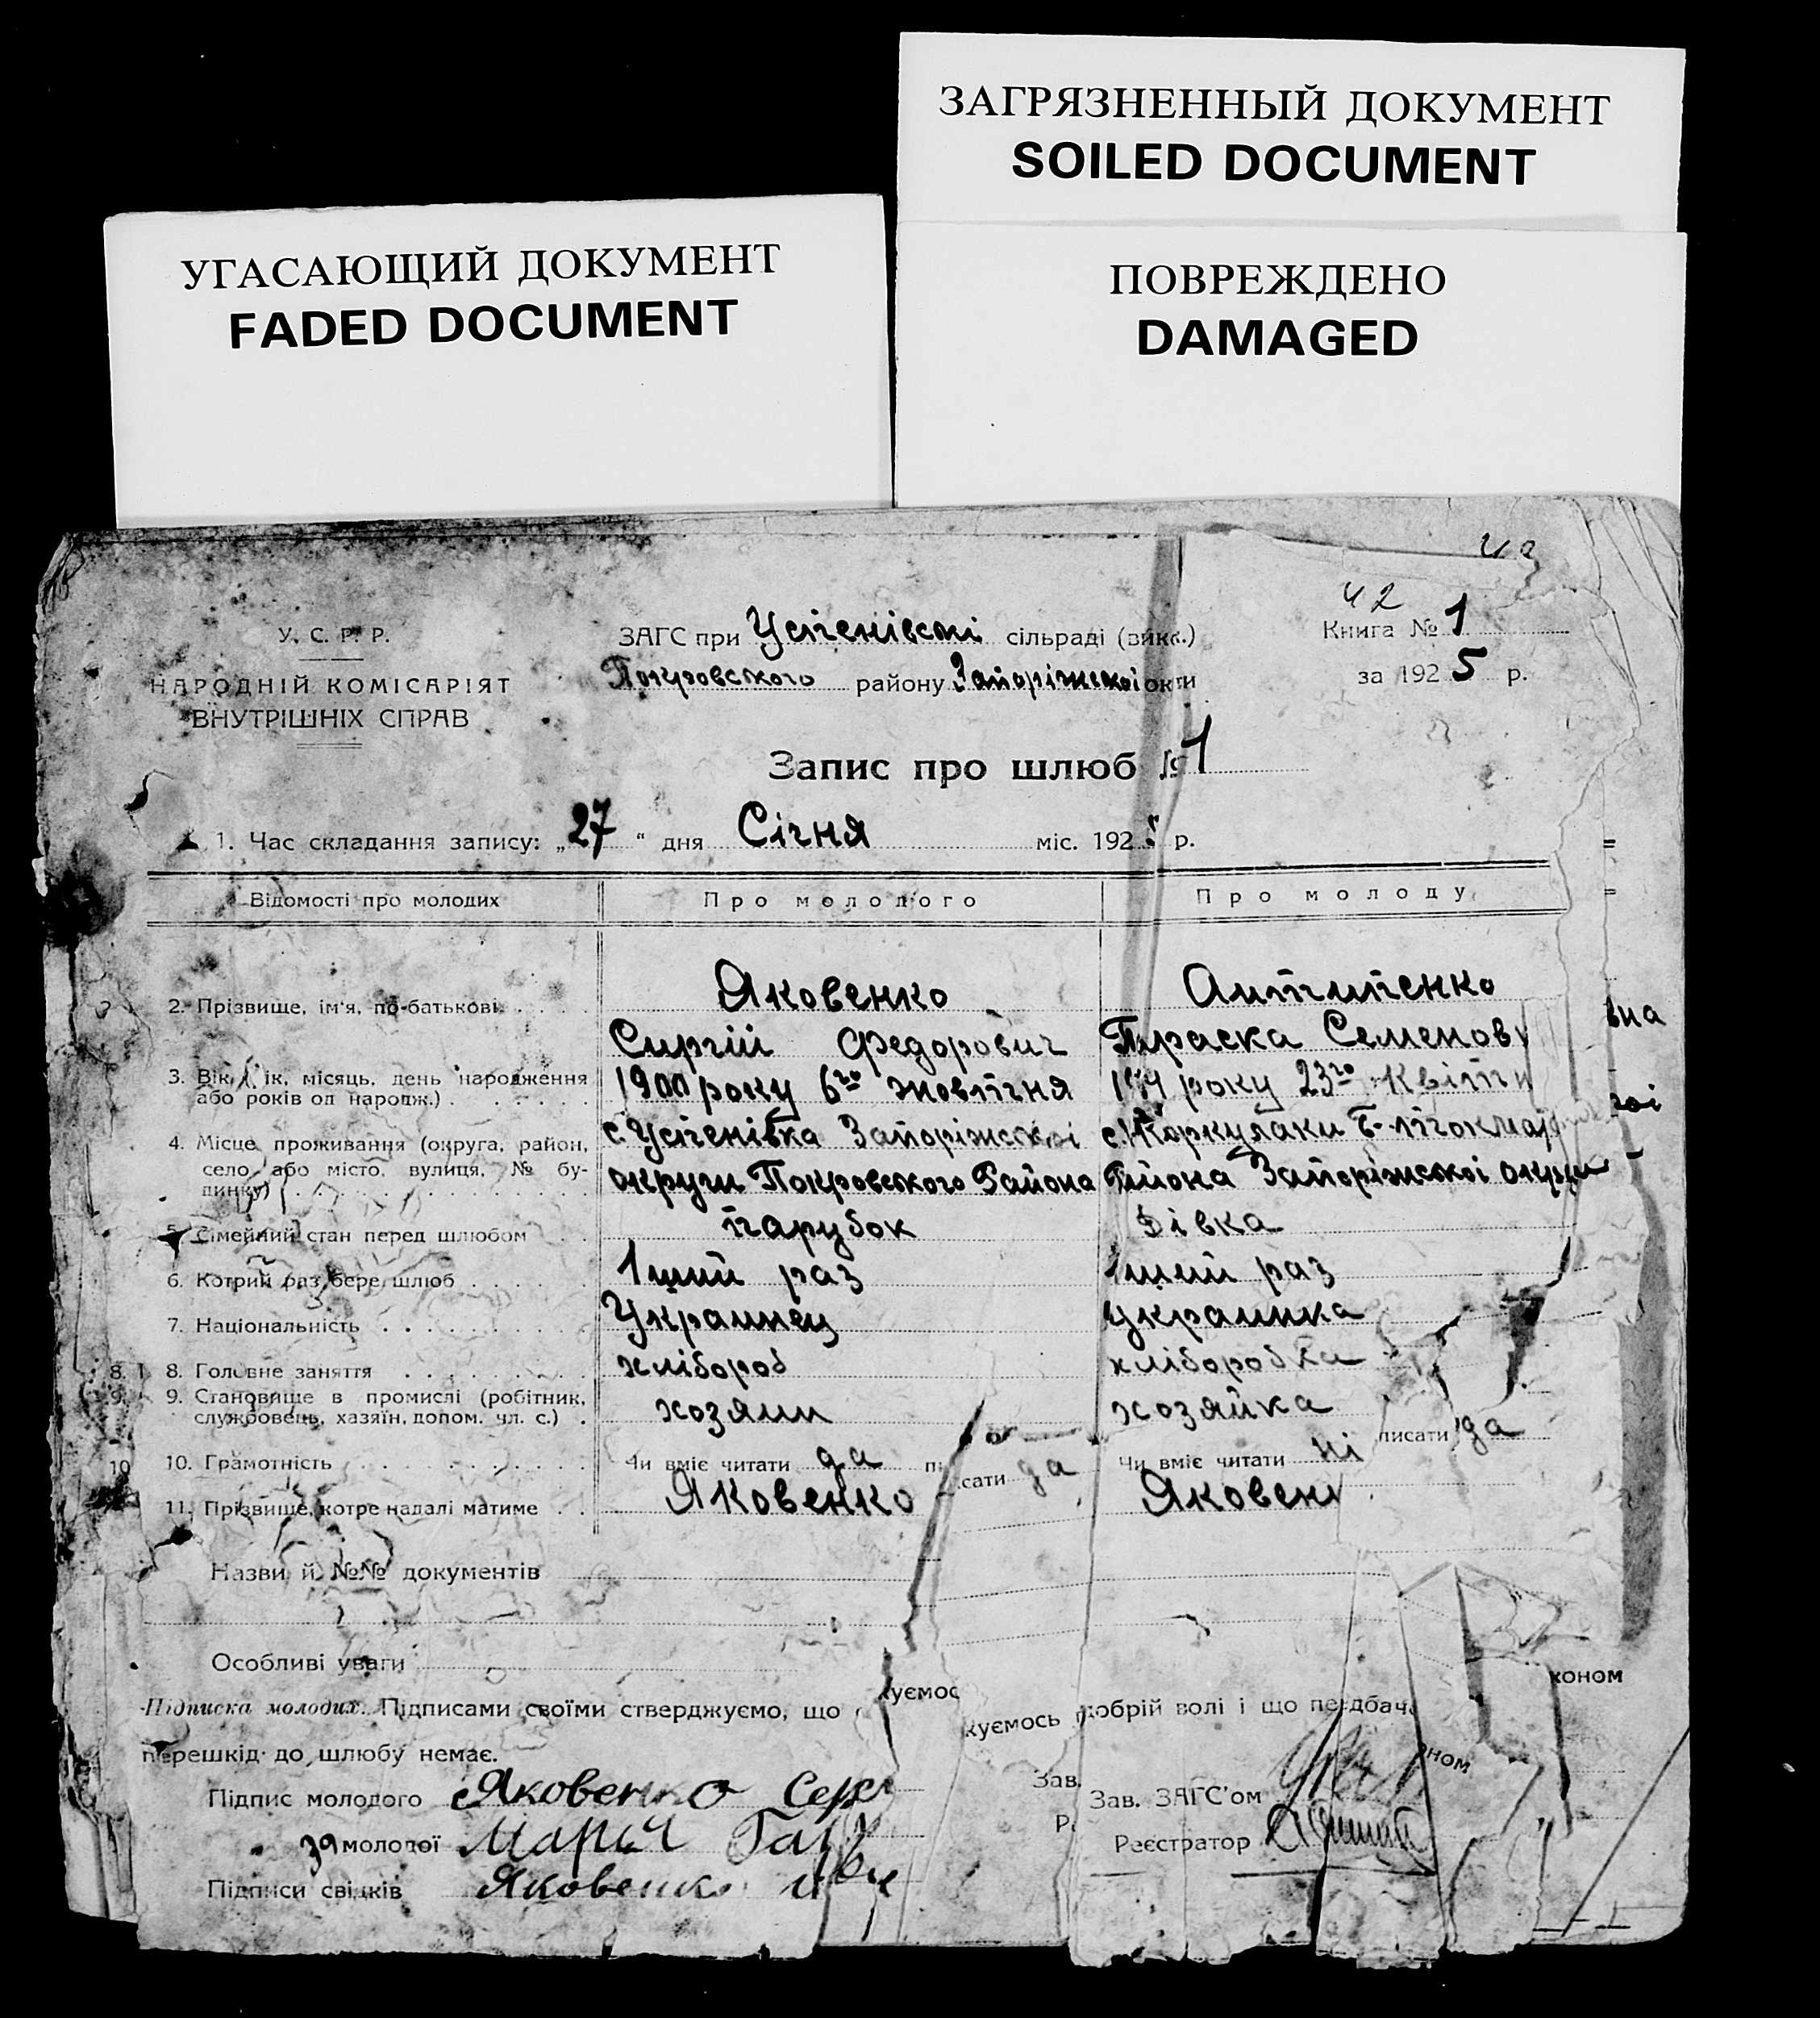 ЗАГРЯЗНЕННЫЙ ДОКУМЕНТ
SOILED DOCUMENT
УГАСАЮЩИЙ ДОКУМЕНТ
FADED DOCUMENT
ПОВРЕЖДЕНО
DAMAGED
42
У. С. Р. Р.
НАРОДНІЙ КОМІСАРІЯТ
ВНУТРІШНІХ СПРАВ
ЗАГС при Успенівскі сільраді (вико.)
Покровського району Запоріжскої
Книга № 1
за 1925 р.
Запис про шлюб № 1
1. Час складання запису: „27“ дня Січня міс. 1925 р.
Відомості про молодих Про молодого Про молоду
2. Прізвище, ім'я, по-батькові Яковенко Антипенко
Сиргій Федорович Параска Семенов
вна
3. Вік (рік, місяць, день народження 1900 року 6го жовтня року 23го Квітн
або років од народж.)
4. Місце проживання (округа, район, с. Успенівка Запоріжскої с. Жоркулаки
село або місто, вулиця, № бу- округи Покровского Района Района Запоріжскої округи
динку)
5. Сімейний стан перед шлюбом парубок Дівка
6. Котрий раз бере шлюб 1ший раз 1ший раз
7. Національність Украинец Украинка
8. Головне заняття хлібороб хліборобка
9. Становище в промислі (робітник, хозяин хозяйка
службовець, хазяїн, допом. чл. с.)
10. Грамотність Чи вміє читати да писати да Чи вміє читати ні писати да
11. Прізвище, котре надалі матиме Яковенко Яковен
Назви й №№ документів
Особливі уваги
Підписка молодих. Підписами своїми стверджуємо, що куємось добрій волі і що передбач
коном
перешкід до шлюбу немає.
Підпис молодого Яковенко Серг
Зав. ЗАГС'ом
за молодої Марья
Реєстратор
Підписи свідків Яковенко